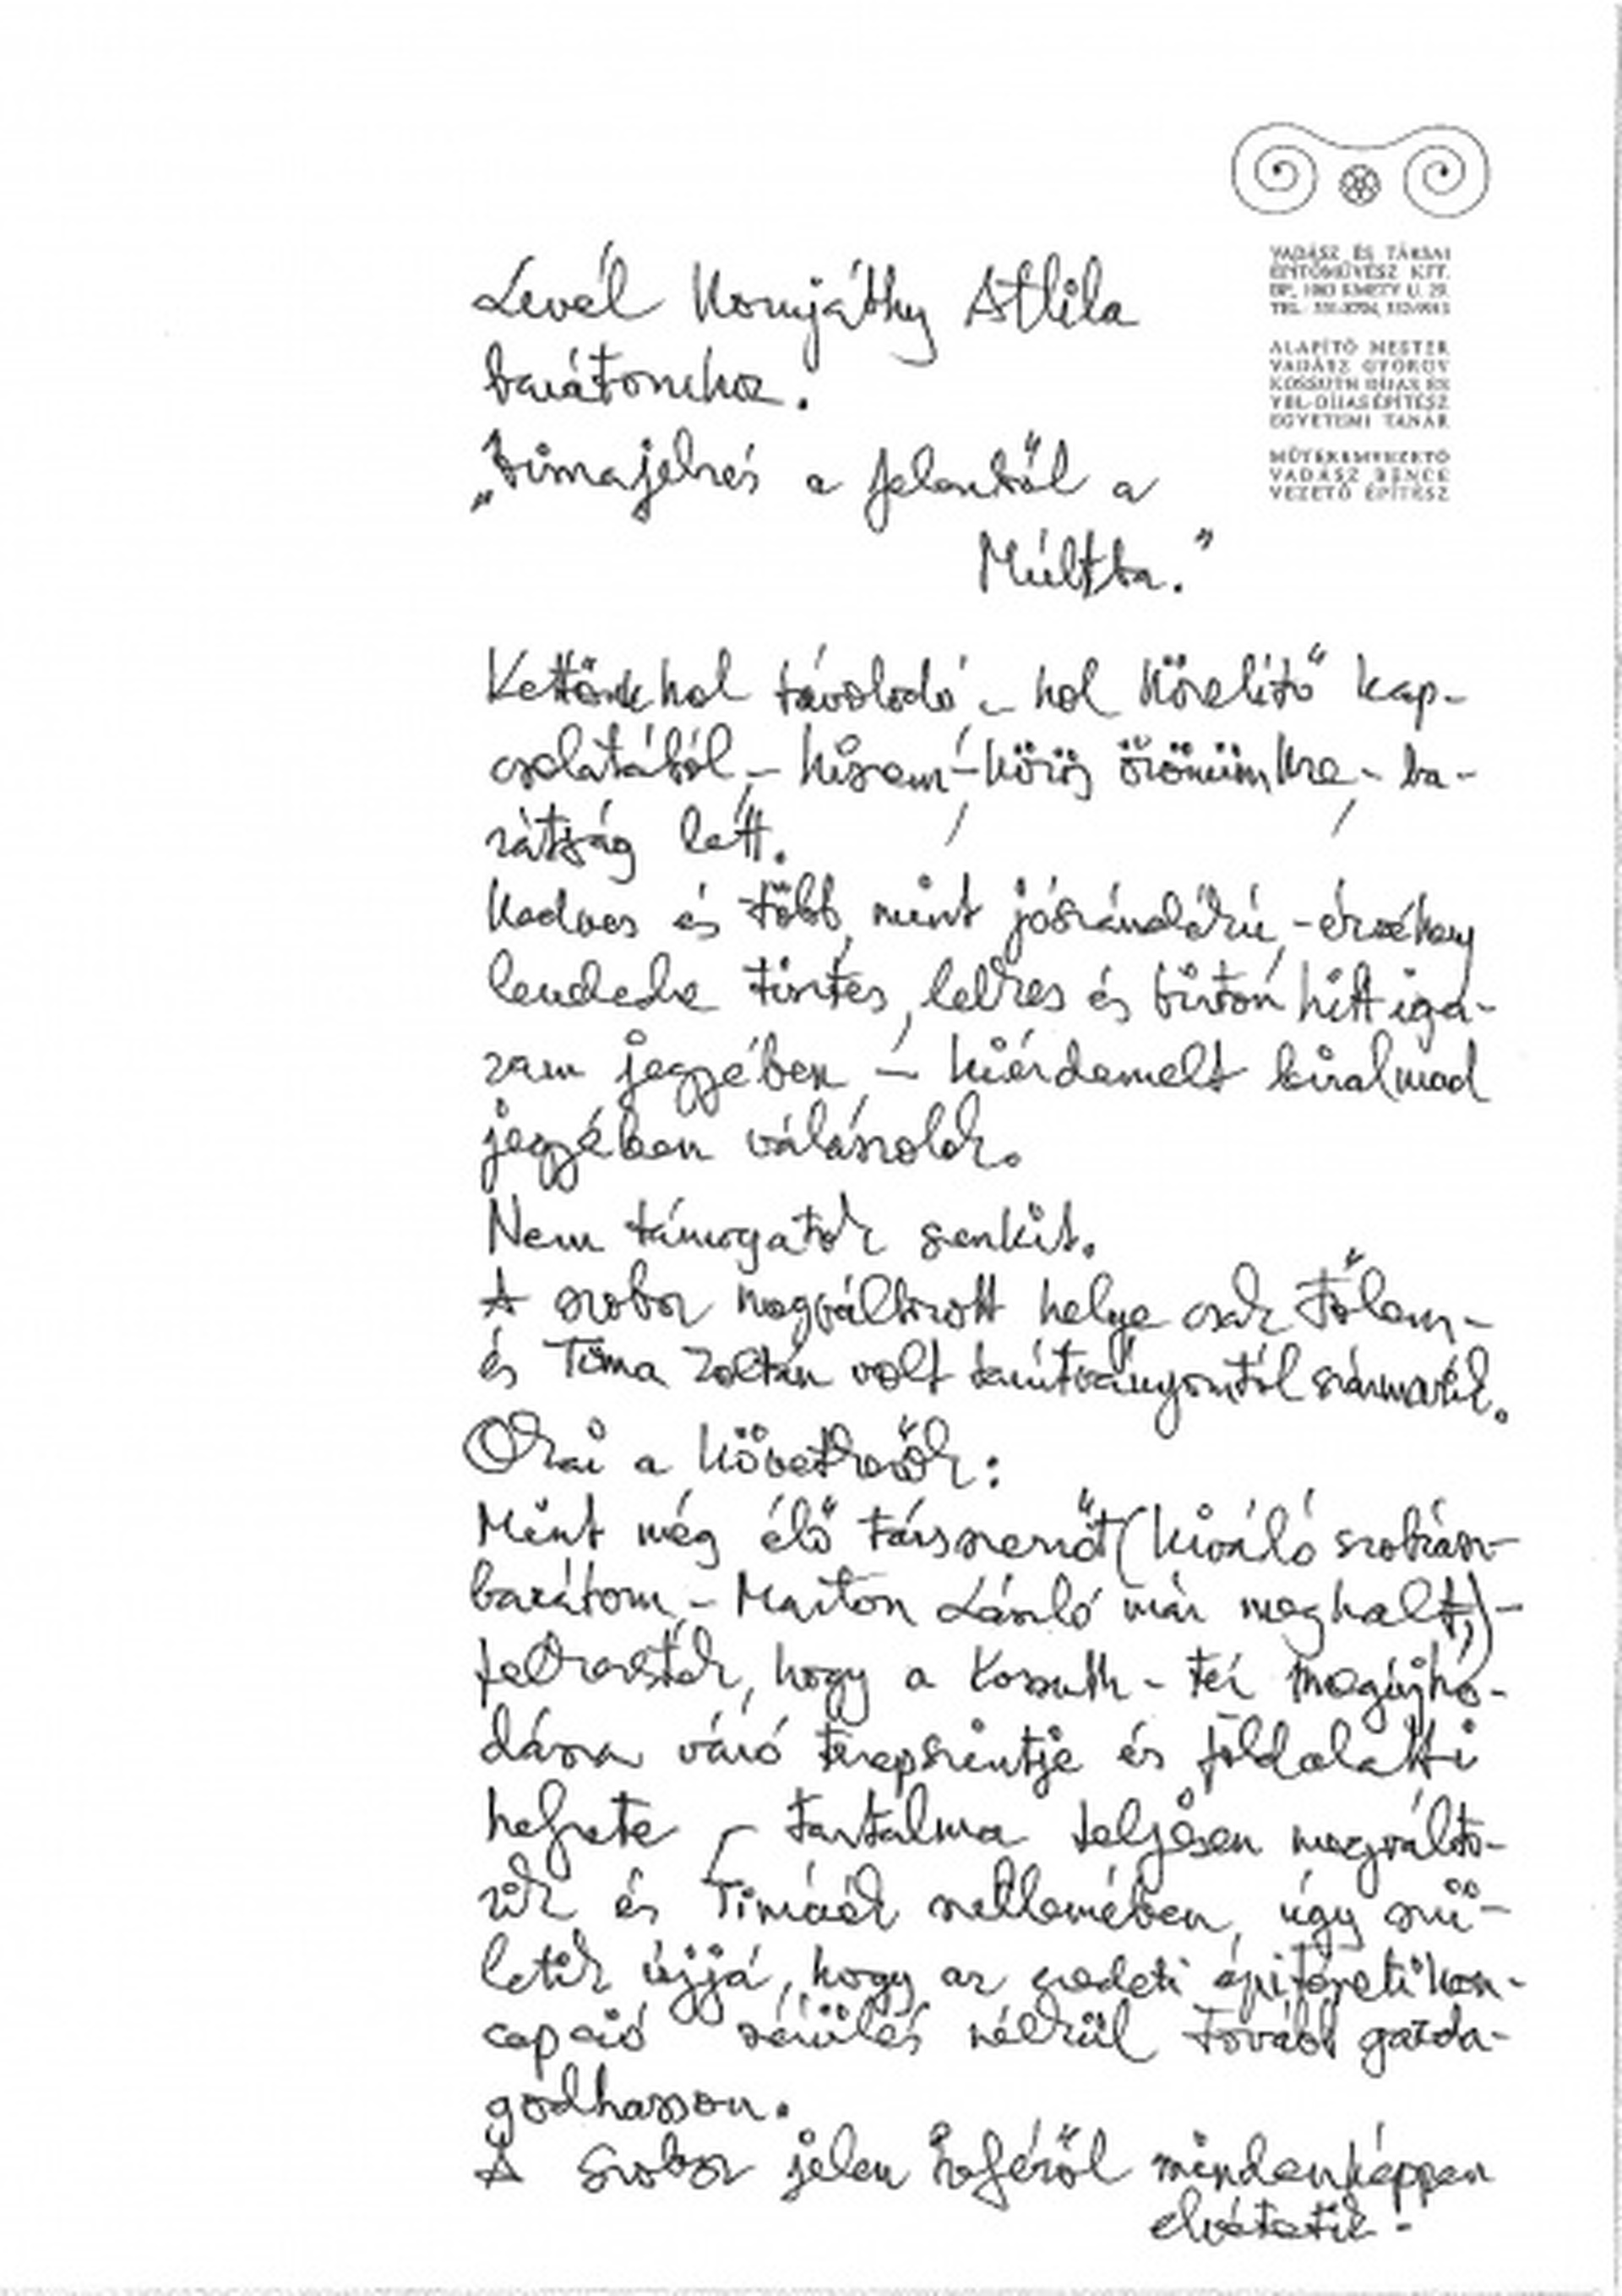 VADÁSZ ÉS TÁRSAI
ÉPÍTŐMŰVÉSZ KFT.
BP., 1063 KMETY U. 29.
TEL.:
ALAPÍTÓ MESTER
VADÁSZ GYÖRGY
KOSSUTH DÍJAS ÉS
YBL-DÍJAS ÉPÍTÉSZ
EGYETEMI TANÁR
MŰTEREMVEZETŐ
VADÁSZ BENCE
VEZETŐ ÉPÍTÉSZ
Levél Kornjáthy Attila
barátomhoz.
a jelentől a
Múltba."
Kettőnk hol távolodó - hol közelítő kap-
csolatából - hiszem - közös örömünkre - ba-
rátság lett.
Kedves és több, mint jószándékú, - érzékeny
leveledre tisztes, lelkes és bizton hitt iga-
zam jegyében - kiérdemelt bizalmad
jegyében válaszolok.
Nem támogatok senkit.
A szobor megváltozott helye csak tőlem -
és Tima Zoltán volt tanítványomtól származik.
Okai a következők:
Mint még élő társszerzőt (kiváló szobrász-
barátom - Marton László már meghalt,) -
felkértek, hogy a Kossuth - tér megújho-
dásra váró terepszintje és földalatti
helyzete - tartalma teljesen megválto-
zik és Timáék szellemében, úgy szü-
letik újjá, hogy az eredeti építészeti kon-
cepció sérülés nélkül tovább gazda-
godhasson.
A szobor jelen helyéről mindenképpen
elvétetik.